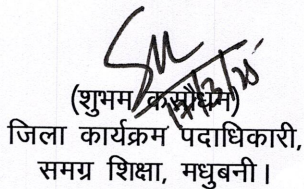 (शुभम कसौधन)
जिला कार्यक्रम पदाधिकारी,
समग्र शिक्षा, मधुबनी।